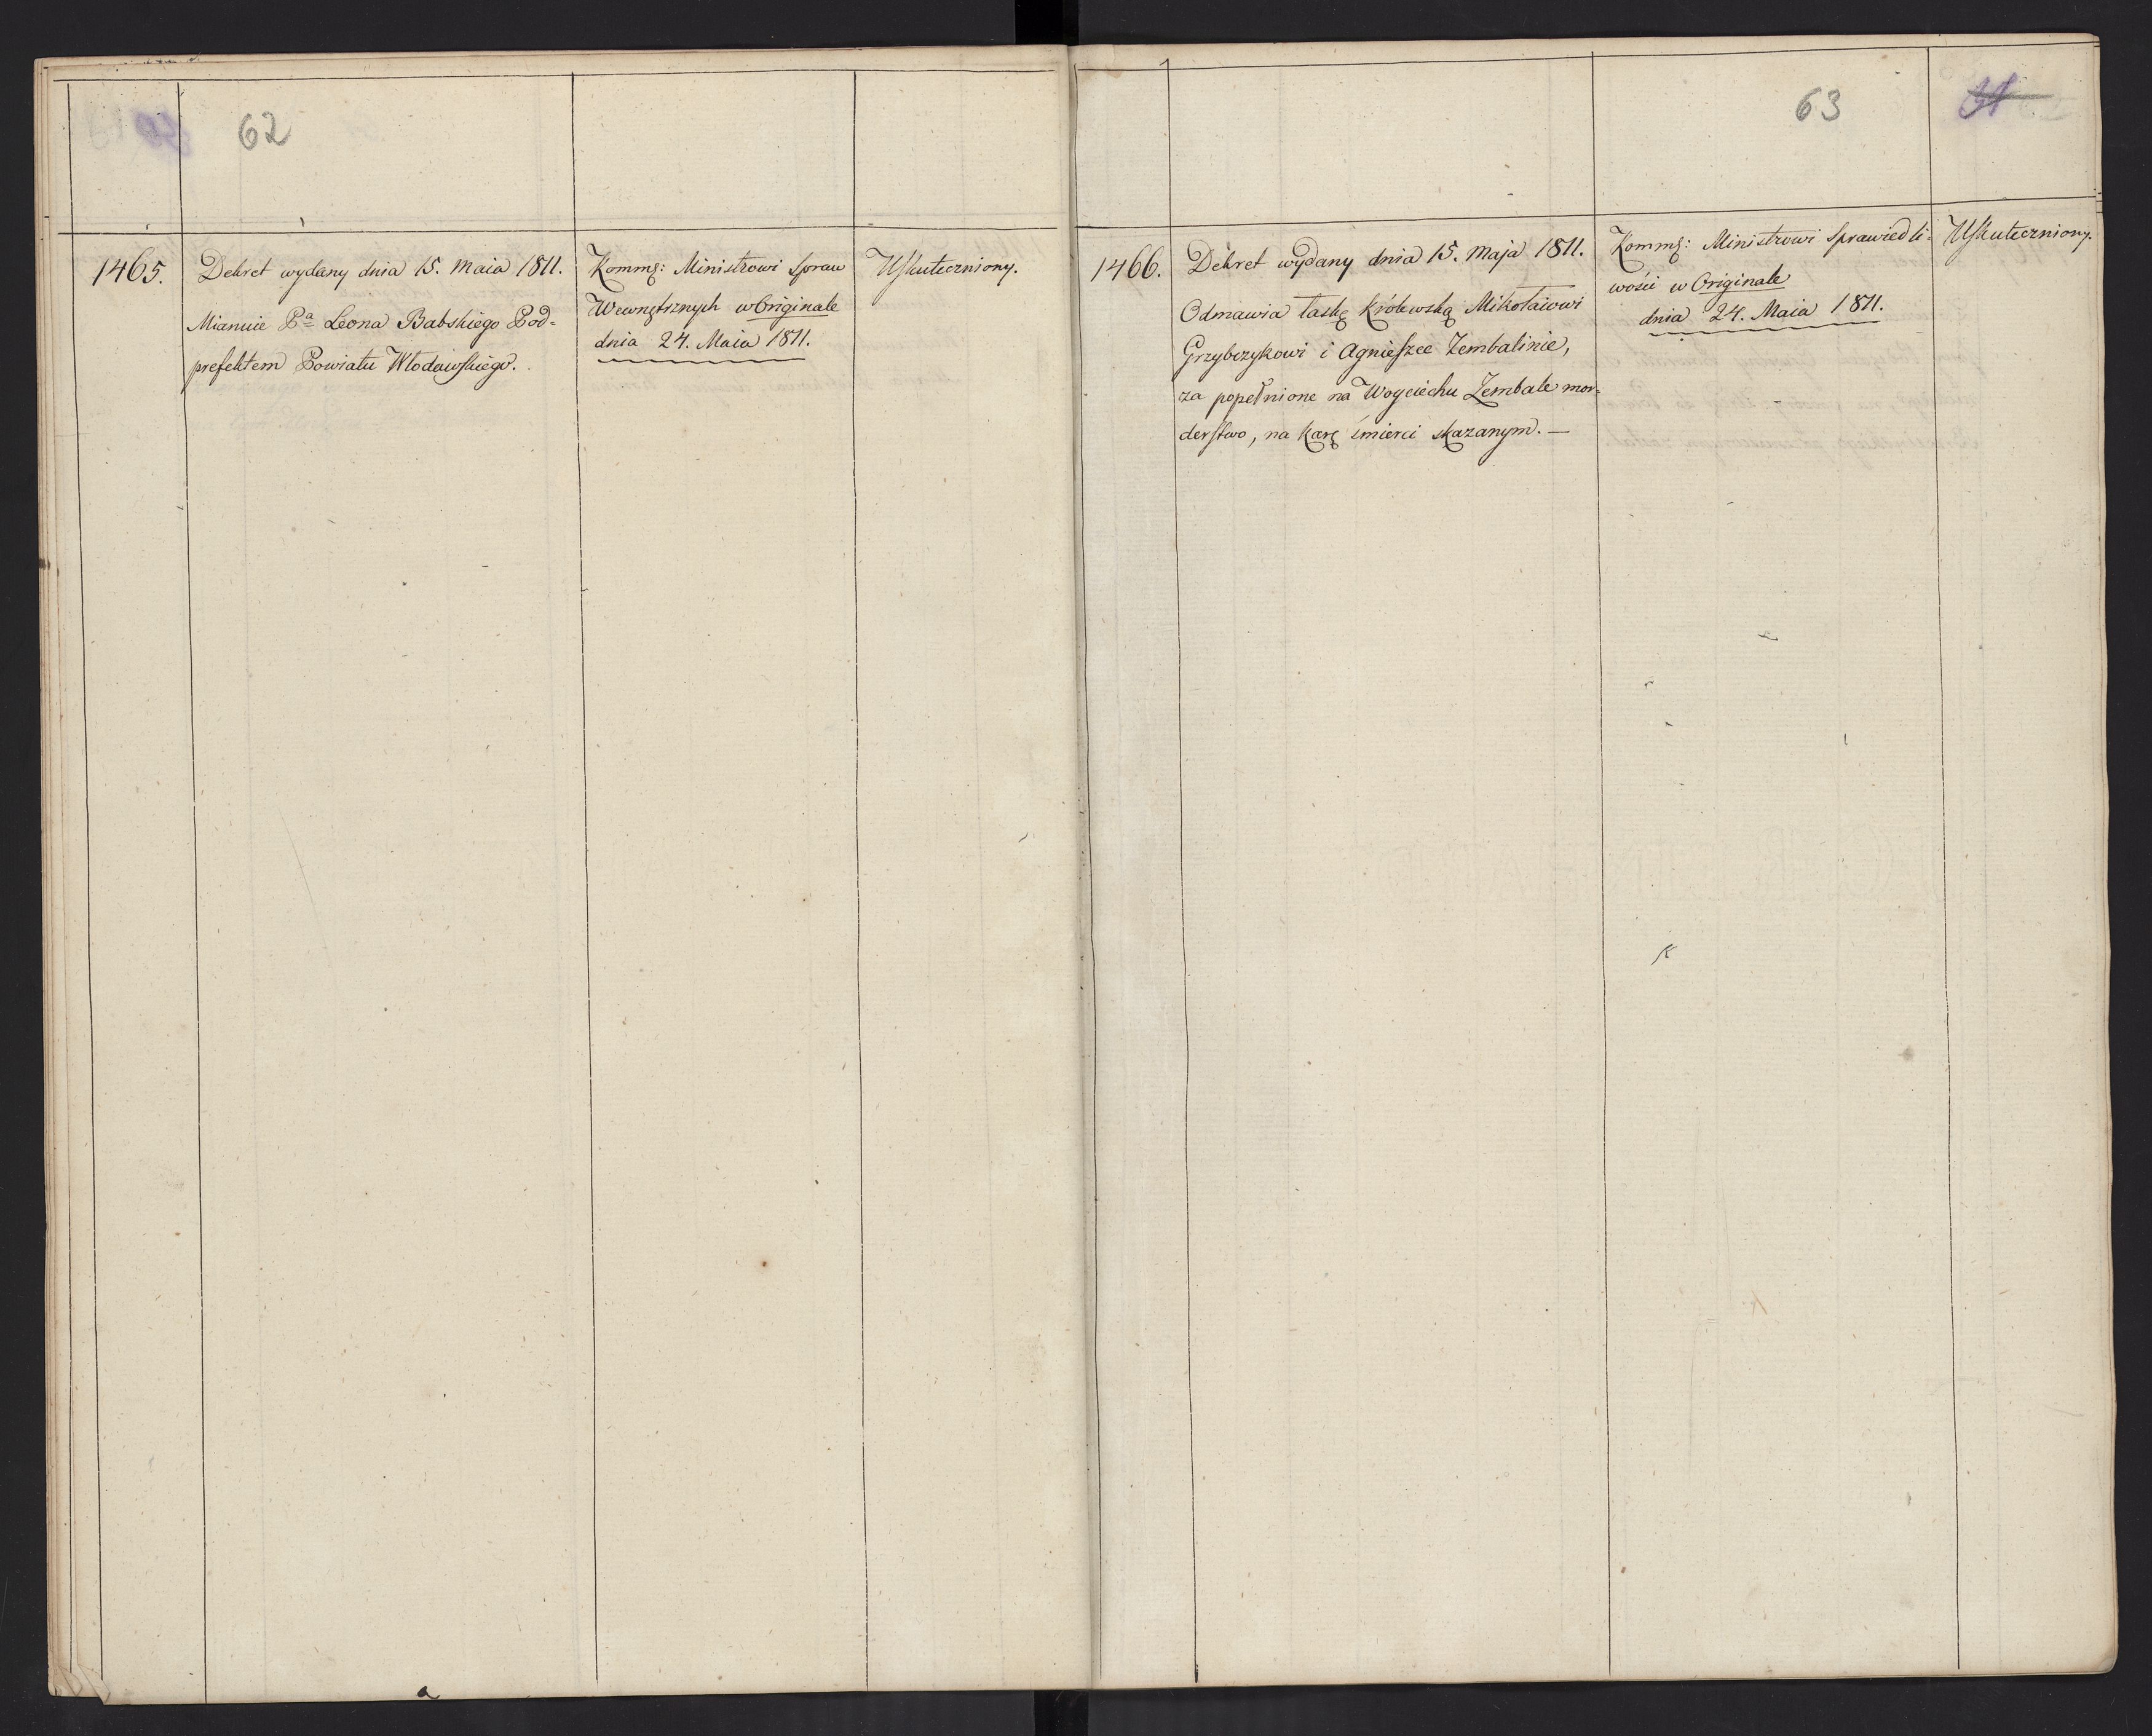 62
1465.
Dekret wydany dnia 15. Maia 1811.
Mianuie Pa Leona Babskiego Pod-
prefektem Powiatu Włodawskiego.
Kommg: Ministrowi Spraw
Wewnętrznych w Originale
dnia 24. Maia 1811.
Uskuteczniony.
63
1466.
Dekret wydany dnia 15. Maja 1811.
Odmawia łaskę Królewską Mikołaiowi
Grzybczykowi i Agnieszce Zembalinie,
za popełnione na Woyciechu Zembale mor-
derstwo, na karę śmierci skazanym. —
Kommg: Ministrowi Sprawiedli-
wości w Originale
dnia 24. Maia 1811.
Uskuteczniony.